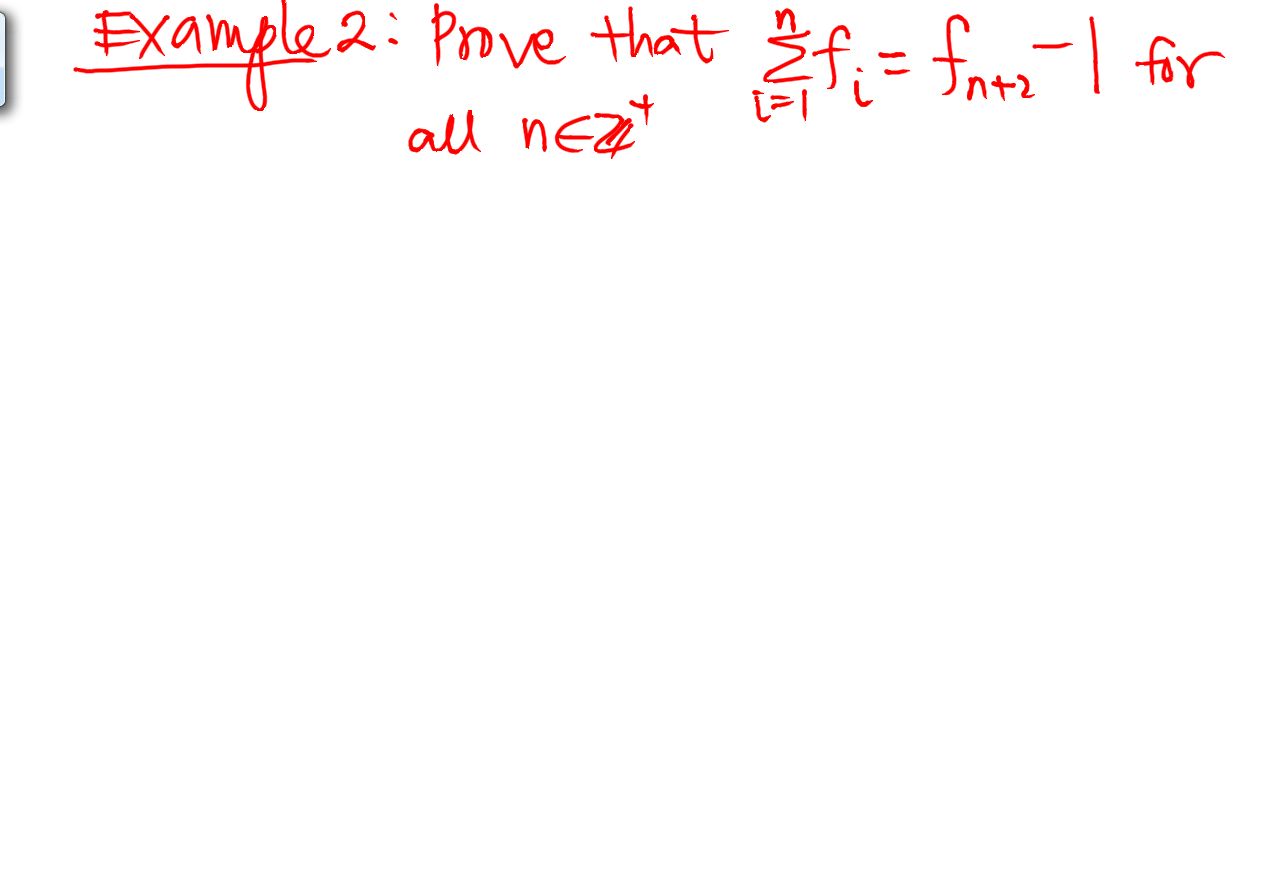 Example 2: Prove that $\sum_{i=1}^{n} f_i = f_{n+2} - 1$ for
all $n \in \mathbb{Z}^+$